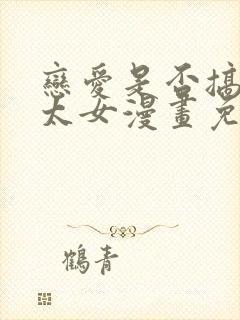 戀愛是否搞
太女漫畫免
鶴青